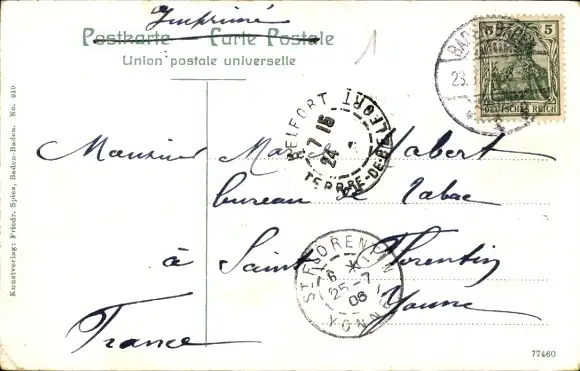 Imprimé
Postkarte — Carte Postale
Union postale universelle
1
5
DEUTSCHES REICH
BADEN
23.
BELFORT
7 15
24
TERRE-DE-BELFORT
Monsieur Marc Habert
bureau de Tabac
à Saint Florentin
Yonne
France
ST FLORENTIN
6 *
25-7
06
YONNE
Kunstverlag: Friedr. Spies, Baden-Baden. No. 919
77460